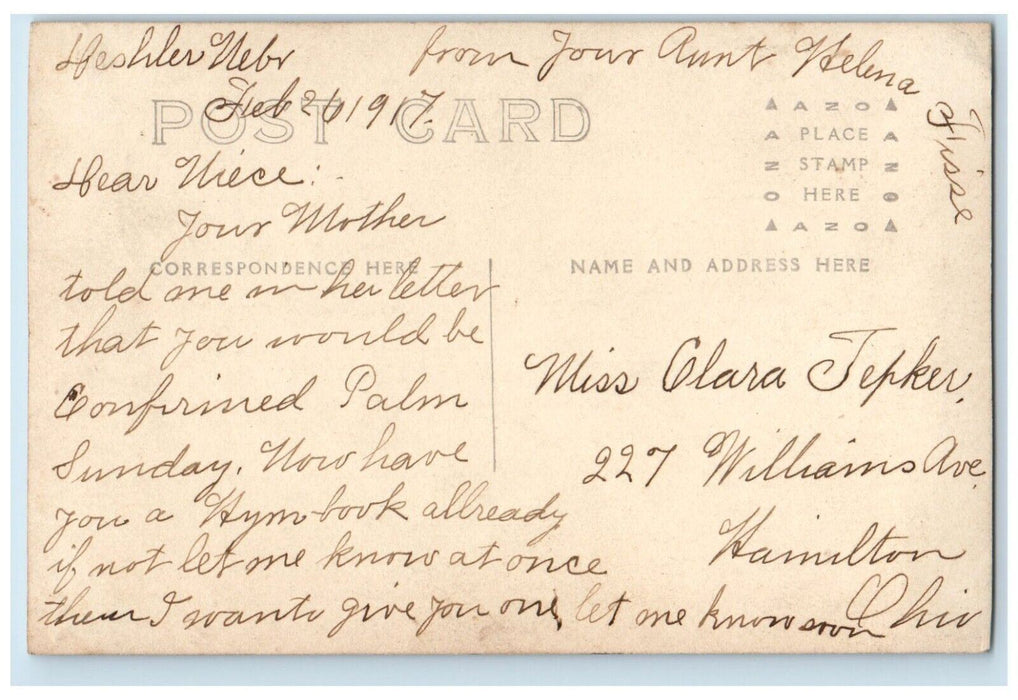 Deshler Nebr
Feb 26 1917.
from Your Aunt Helena
Fisse
POST CARD
AZO
PLACE
STAMP
HERE
AZO
Dear Niece:-
Your Mother
told me in her letter
that you would be
Confirmed Palm
Sunday. Now have
you a Hymbook allready
if not let me know at once
then I want to give you one, let me know soon
CORRESPONDENCE HERE
NAME AND ADDRESS HERE
Miss Clara Tepker,
227 Williams Ave.
Hamilton
Ohio